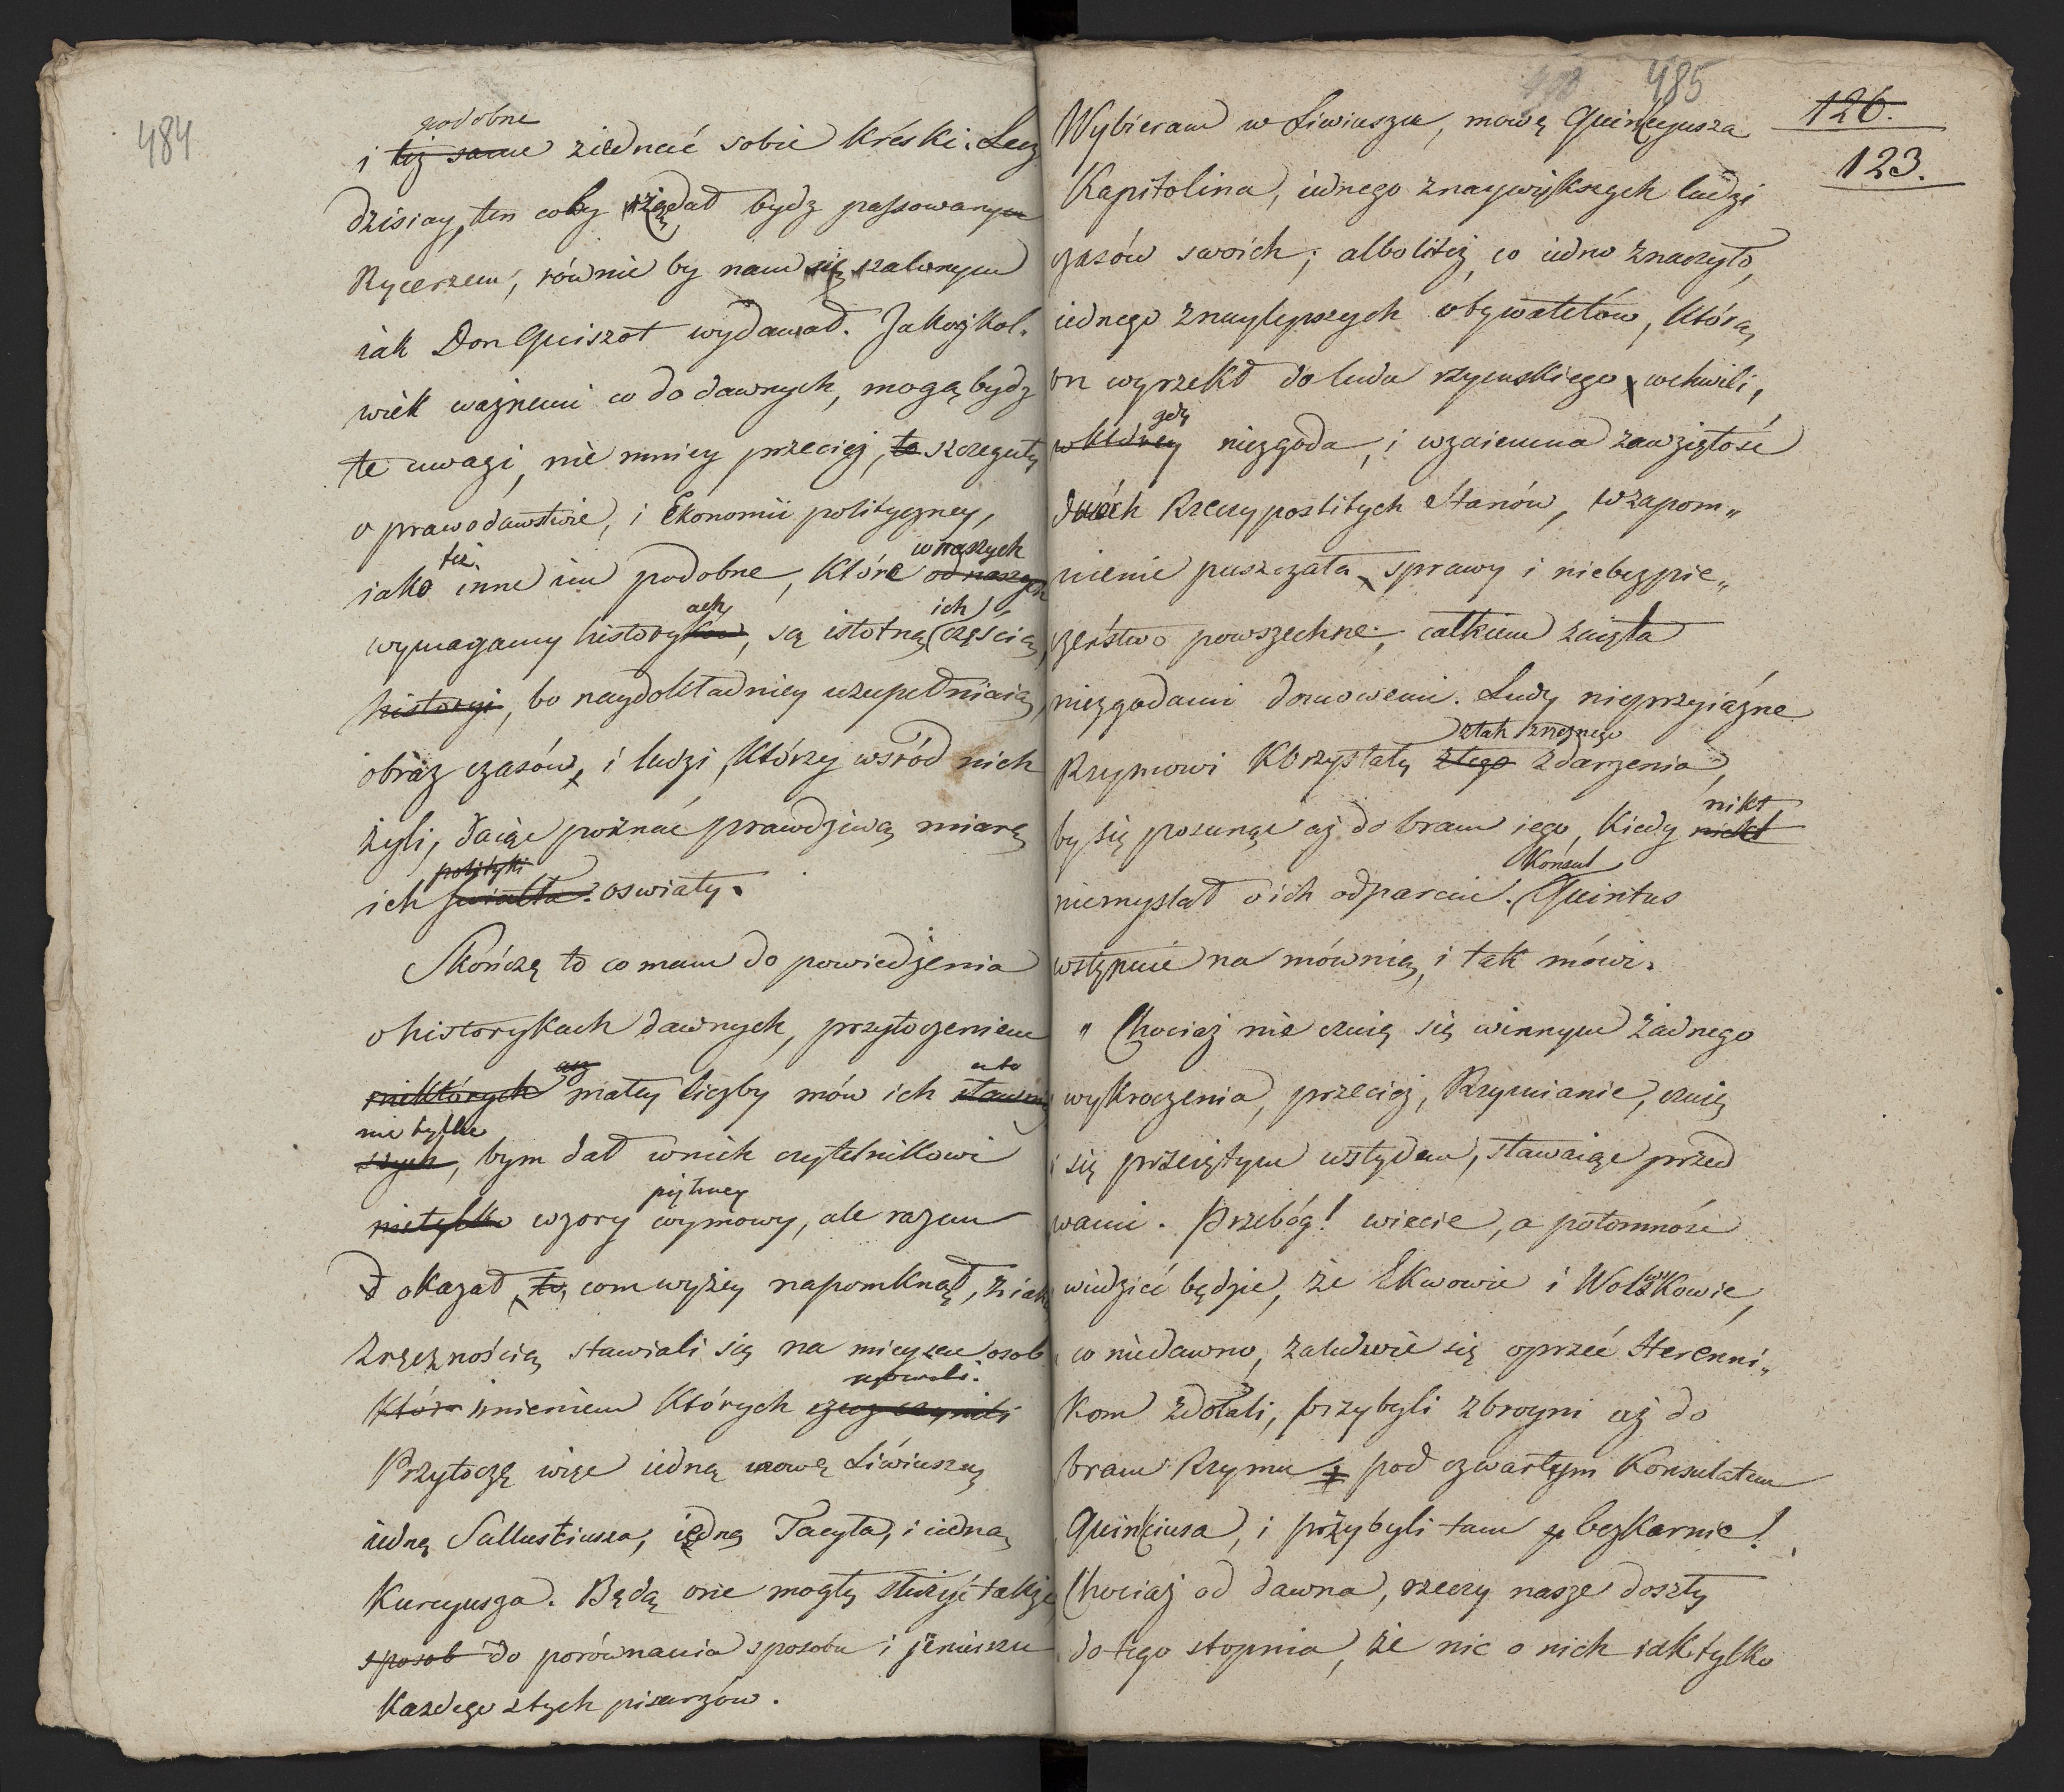 484
podobne
i też same ziednać sobie kreski. Lecz
dzisiay, ten coby żądał bydz passowanym
Rycerzem, równie by nam się szalonym
iak Don Quiszot wydawał. Jakożkol-
wiek ważnemi co do dawnych, mogą bydz
te uwagi, nie mniey przecież, te szczeguły
o prawodawstwie, i Ekonomii polityczney,
też w naszych
iako inne im podobne, które od naszych
ach ich
wymagamy historyków, są istotną częścią,
historyi, bo naydokładniey uzupełniaią
obraz czasów, i ludzi, którzy wsród nich
żyli, daiąc poznać prawdziwą miarę
polityki
ich światła. oswiaty.
Skończę to co mam do powiedzenia
o historykach dawnych, przytoczeniem
niektórych małey liczby mów ich
nie tylko
szych, bym dał w nich czytelnikowi
piękney
nietylko wzory wymowy, ale razem
okazał, to, com wyżey napomknął, z iaką
zręcznością stawiali się na mieyscu osob
mówili.
któr imieniem których rzecz czynili
Przytoczę więc iedną mowę Liwiusza,
iedną Sallustiusza, iedną Tacyta, i iedną
Kurcyusza. Będą one mogły służyć także
sposob do porównania sposobu i jeniuszu
każdego z tych pisarzów.
485
126.
123.
Wybieram w Liwiuszu, mowę Quincyusza
Kapitolina, iednego znaywiększych ludzi
czasów swoich; albolitéż, co iedno znaczyło,
iednego znaylepszych obywatelów, którą
on wyrzekł do ludu rzymskiego, wchwili,
gdy
wktórey niezgoda, i wzaiemna zawziętość
dwóch Rzeczypospolitych Stanów, wzapom„
nienie puszczała sprawy i niebezpie„
czeństwo powszechne, całkiem zaięta
niezgodami domowemi. Ludy nieprzyiazne
ztak zręcznego
Rzymowi korzystały ztego zdarzenia,
nikt
by się posunąć aż do bram iego, kiedy nickt
Konsul
niemyslał o ich odparciu. Quintus
wstępuie na mównicę, i tak mówi.
„ Chociaż nie czuię się winnym żadnego
wykroczenia, przecież, Rzymianie, czuię
się przeiętym wstydem, stawaiąc przed
wami. Przebóg! wiecie, a potomność
widzieć będzie, że Ekwowie i Wolskowie,
co niedawno, zaledwie się oprzeć Herenni„
kom zdołali, przybyli zbroyni aż do
bram Rzymu pod czwartym Konsulatem
Quinciusa, i przybyli tam bezkarnie!
Chociaż od dawna, rzeczy nasze doszły
do tego stopnia, że nic o nich iak tylko